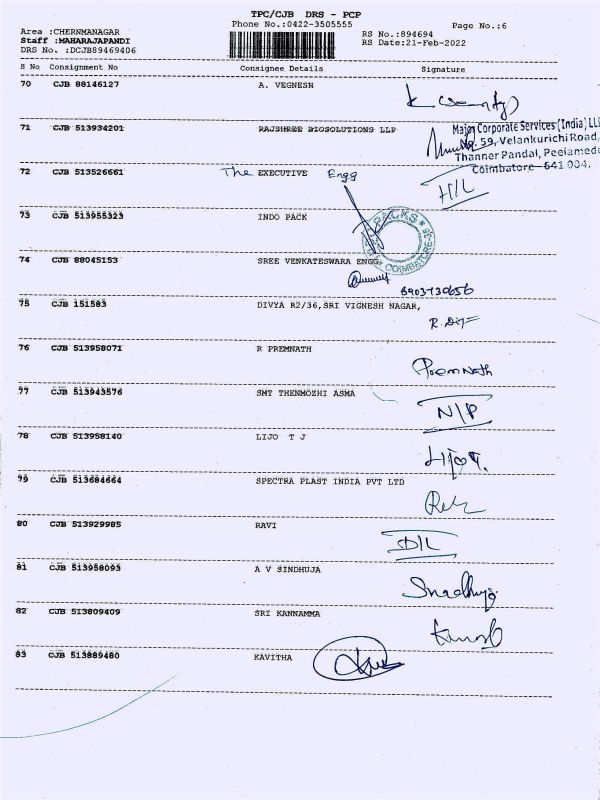 TPC/CJB DRS - PCP
Phone No.:0422-3505555
Page No.:6
Area :CHERNMANAGAR
RS No.:894694
Staff :MAHARAJAPANDI
RS Date:21-Feb-2022
DRS No. :DCJB89469406
S No Consignment No Consignee Details Signature
70 CJB 88146127 A. VEGNESH
71 CJB 513934201 RAJSHREE BIOSOLUTIONS LLP
Major Corporate Services (India) LL
59, Velankurichi Road,
Thanner Pandal, Peelamedu
Coimbatore-641 004.
72 CJB 513526661 The EXECUTIVE Engg
H/L
73 CJB 513955323 INDO PACK
PACKS * COIMBATORE-35
74 CJB 88045153 SREE VENKATESWARA ENGG
8903730656
75 CJB 151583 DIVYA R2/36,SRI VIGNESH NAGAR,
76 CJB 513958071 R PREMNATH
Premnath
77 CJB 513943576 SMT THENMOZHI ASMA
N/P
78 CJB 513958140 LIJO T J
79 CJB 513684664 SPECTRA PLAST INDIA PVT LTD
80 CJB 513929985 RAVI
D/L
81 CJB 513958093 A V SINDHUJA
82 CJB 513809409 SRI KANNAMMA
83 CJB 513889480 KAVITHA